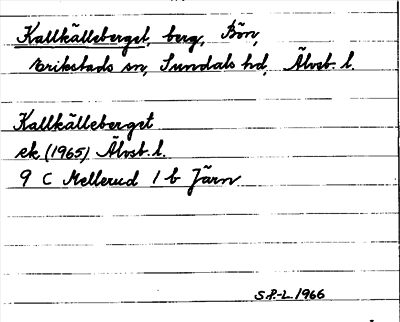 Kallkälleberget, berg, Bön,
Erikstads sn, Sundals hd, Älvsb. l.
Kallkälleberget
ek. (1965) Älvsb. l.
9 C Mellerud 1 b Järn
S.P.-L. 1966